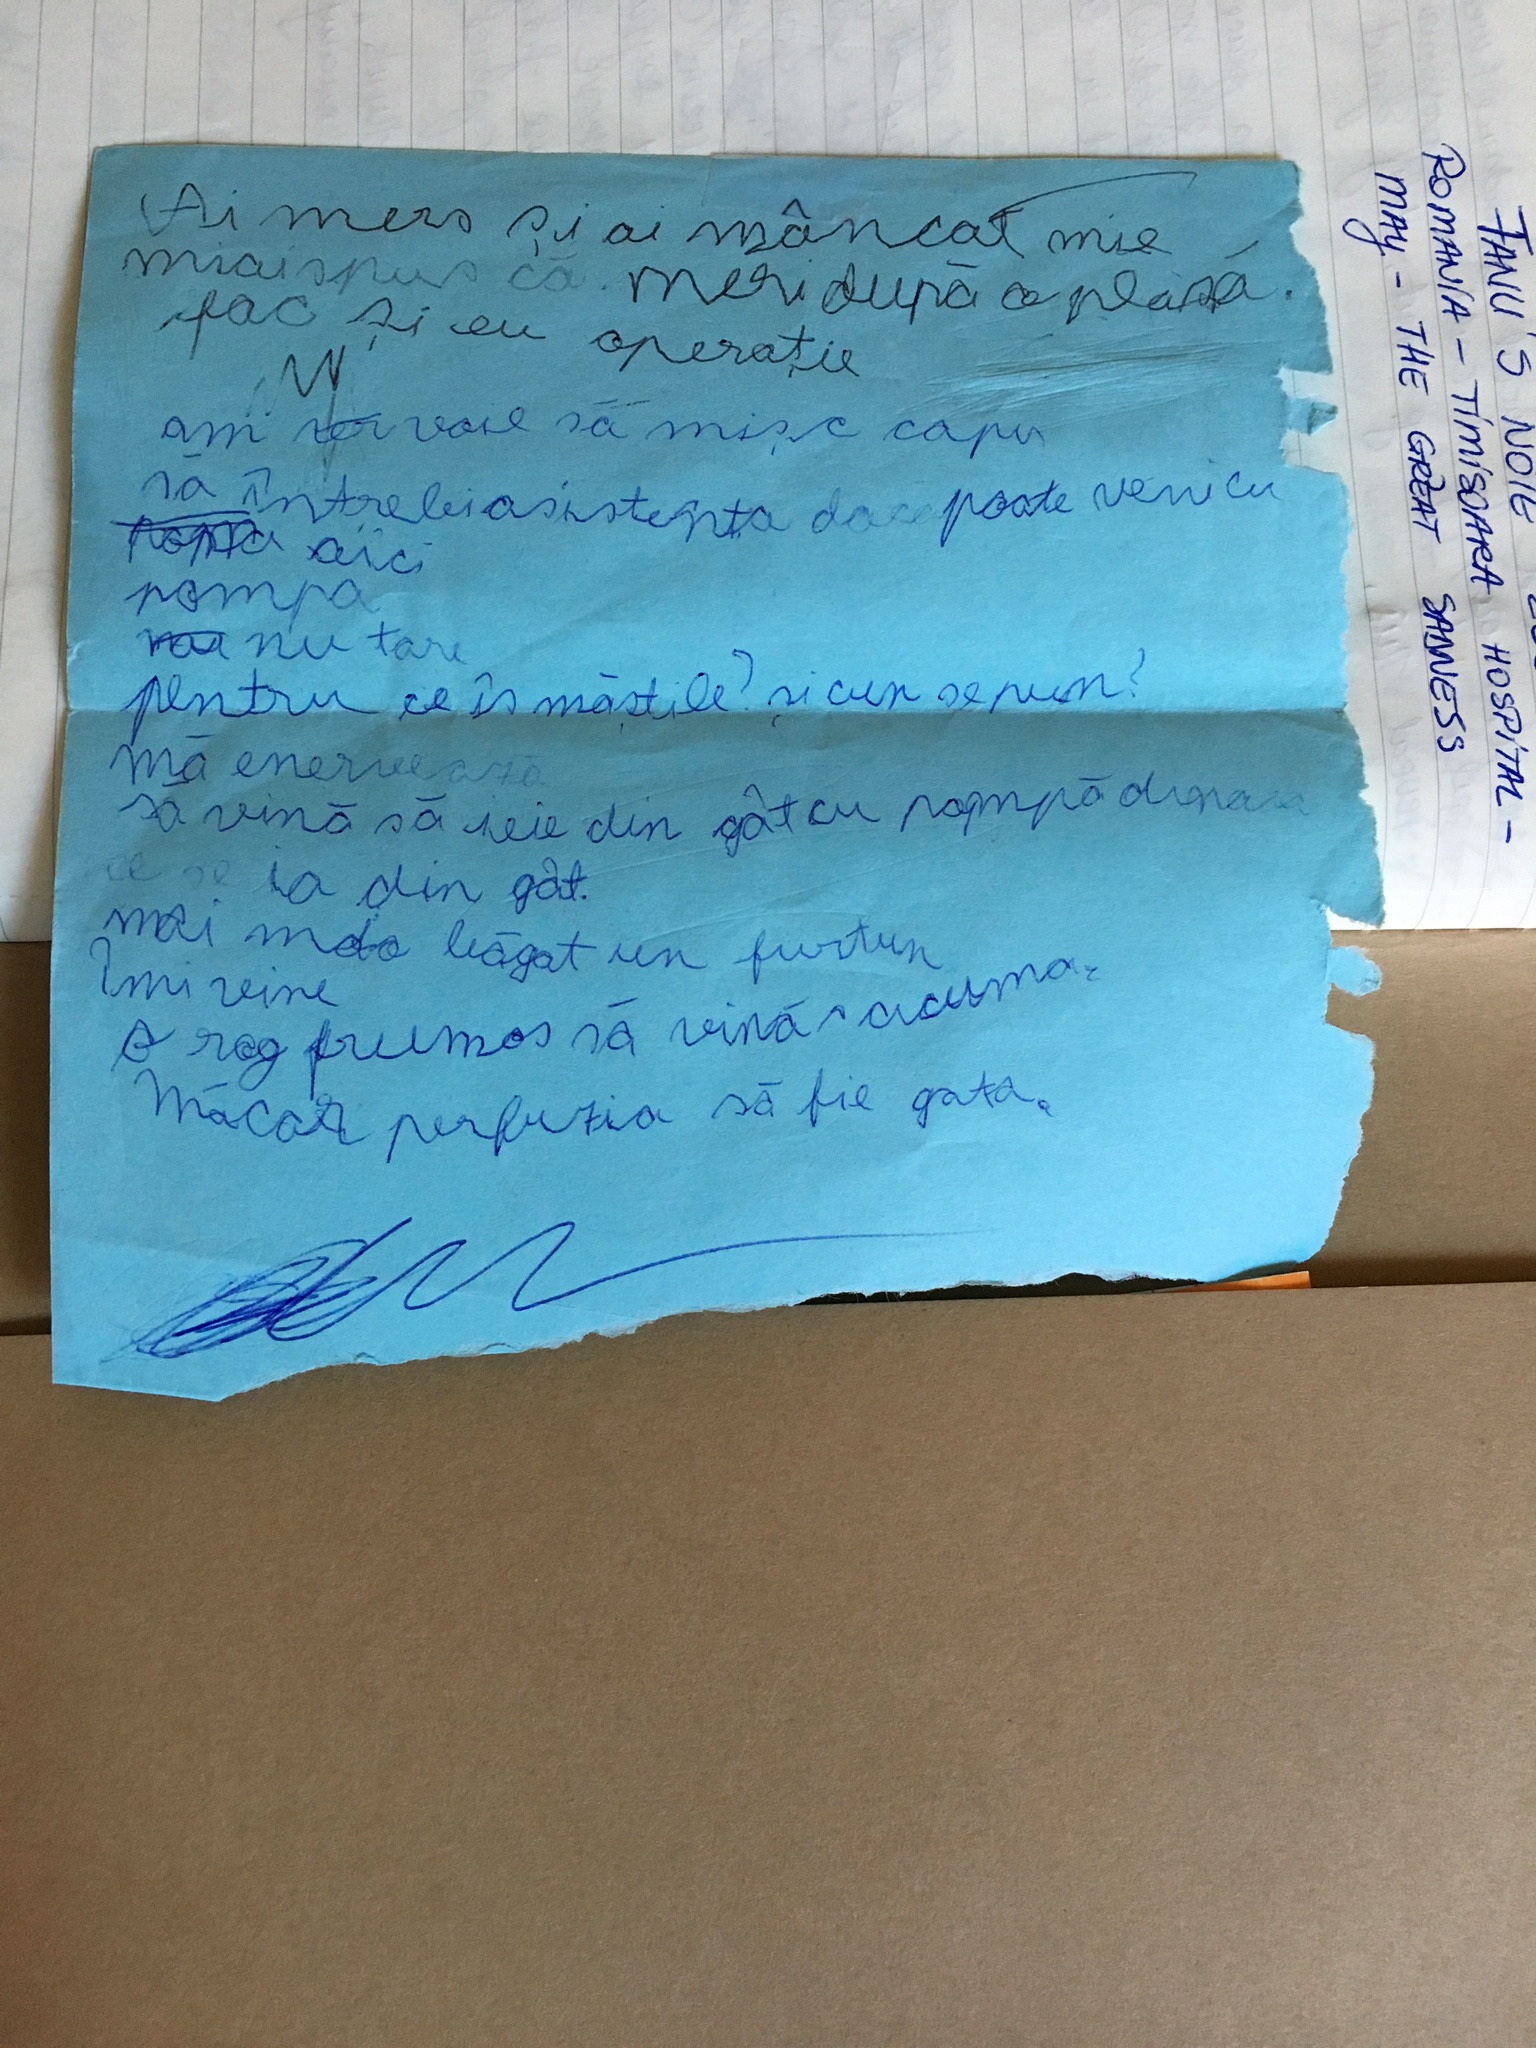 Ai mers și ai mâncat mie
miaispus că. Meri după o plasă.
fac și eu operație
am voie să mișc capu
să întrebi asistenta dacă poate veni cu
aici
pompa
nu tare
pentru ce îs măștile? și cum se pun?
mă enervează
să vină să ieie din gât cu pompă dupaia
ce se ia din gât.
mai băgat un furtun
Îmi vine
O rog frumos să vină acuma.
Măcar perfuzia să fie gata.
IANU'S NOTE
ROMANIA - TIMISOARA HOSPITAL -
MAY - THE GREAT SADNESS